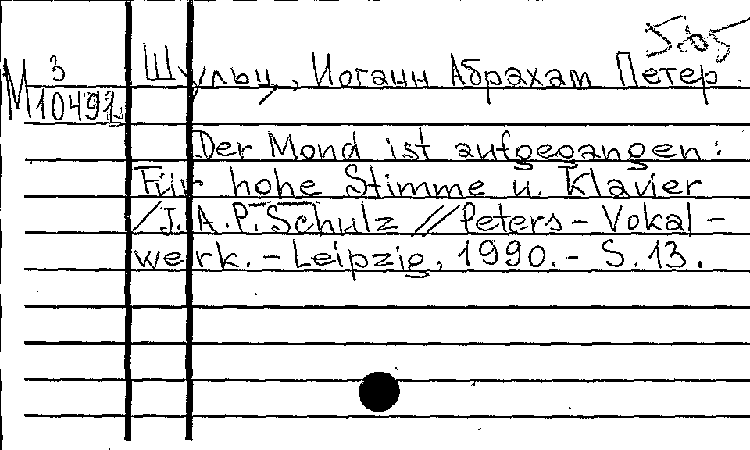 565
М 3
10492
Шульц, Иоганн Абрахам Петер.
Der Mond ist aufgegangen:
Für hohe Stimme u. Klavier
/J. A. P. Schulz // Peters-Vokal-
werk. - Leipzig, 1990. - S. 13.